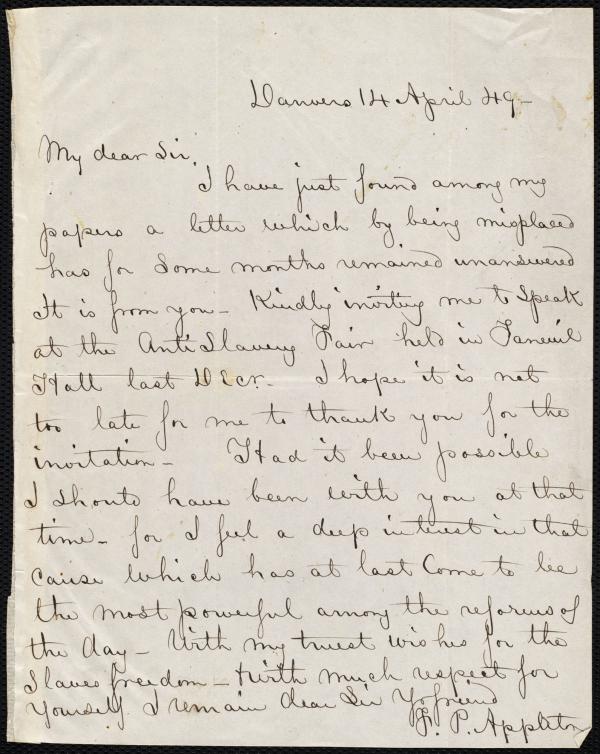 Danvers 14 April 49-
My dear Sir,
I have just found among my
papers a letter which by being misplaced
has for some months remained unanswered
It is from you - Kindly inviting me to speak
at the AntiSlavery Fair held in Faneuil
Hall last Decr. - I hope it is not
too late for me to thank you for the
invitation - Had it been possible
I should have been with you at that
time - for I feel a deep interest in that
cause which has at last come to be
the most powerful among the reforms of
the day - With my truest wishes for the
Slaves freedom - & with much respect for
yourself I remain dear Sir Yr friend
F. P. Appleton